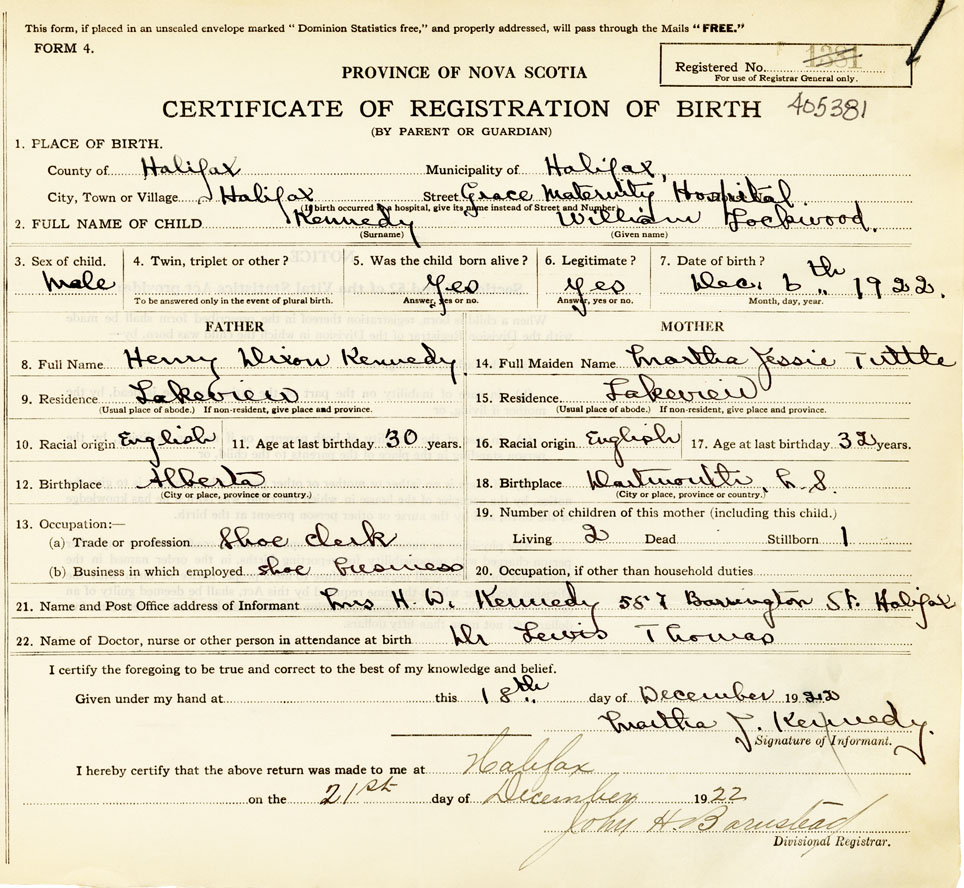 This form, if placed in an unsealed envelope marked "Dominion Statistics free," and properly addressed, will pass through the Mails "FREE."
FORM 4.
Registered No. 1381
For use of Registrar General only.
PROVINCE OF NOVA SCOTIA
CERTIFICATE OF REGISTRATION OF BIRTH 405381
(BY PARENT OR GUARDIAN)
1. PLACE OF BIRTH.
County of Halifax Municipality of Halifax,
City, Town or Village Halifax Street Grace Maternity Hospital
(If birth occurred in a hospital, give its name instead of Street and Number)
2. FULL NAME OF CHILD Kennedy William Lockwood.
(Surname) (Given name)
3. Sex of child. 4. Twin, triplet or other? 5. Was the child born alive? 6. Legitimate? 7. Date of birth?
Male Yes Yes Dec. 6th 1922.
To be answered only in the event of plural birth. Answer, yes or no. Answer, yes or no. Month, day, year.
FATHER MOTHER
8. Full Name Henry Dixon Kennedy. 14. Full Maiden Name Martha Jessie Tuttle
9. Residence Lakeview 15. Residence. Lakeview
(Usual place of abode.) If non-resident, give place and province. (Usual place of abode.) If non-resident, give place and province.
10. Racial origin English 11. Age at last birthday 30 years. 16. Racial origin English 17. Age at last birthday 32 years.
12. Birthplace Alberta 18. Birthplace Dartmouth, N.S.
(City or place, province or country.) (City or place, province or country.)
13. Occupation:— 19. Number of children of this mother (including this child.)
(a) Trade or profession Shoe clerk Living 2 Dead Stillborn 1
(b) Business in which employed shoe business 20. Occupation, if other than household duties
21. Name and Post Office address of Informant Mrs H. D. Kennedy 557 Barrington St. Halifax
22. Name of Doctor, nurse or other person in attendance at birth Dr Lewis Thomas
I certify the foregoing to be true and correct to the best of my knowledge and belief.
Given under my hand at this 18th day of December 1922
Martha J. Kennedy.
Signature of Informant.
I hereby certify that the above return was made to me at Halifax
on the 21st day of December 1922
John H. Barnstead
Divisional Registrar.